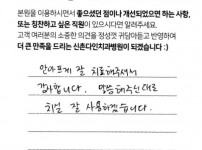 본원을 이용하시면서 좋으셨던 점이나 개선되었으면 하는 사항,
또는 칭찬하고 싶은 직원이 있으시다면 알려주세요.
고객 여러분의 소중한 의견을 정성껏 귀담아듣고 반영하여
더 큰 만족을 드리는 신촌다인치과병원이 되겠습니다 :)
안아프게 잘 치료해주셔서
감사합니다. 말씀해주신대로
치실 잘 사용하겠습니다.